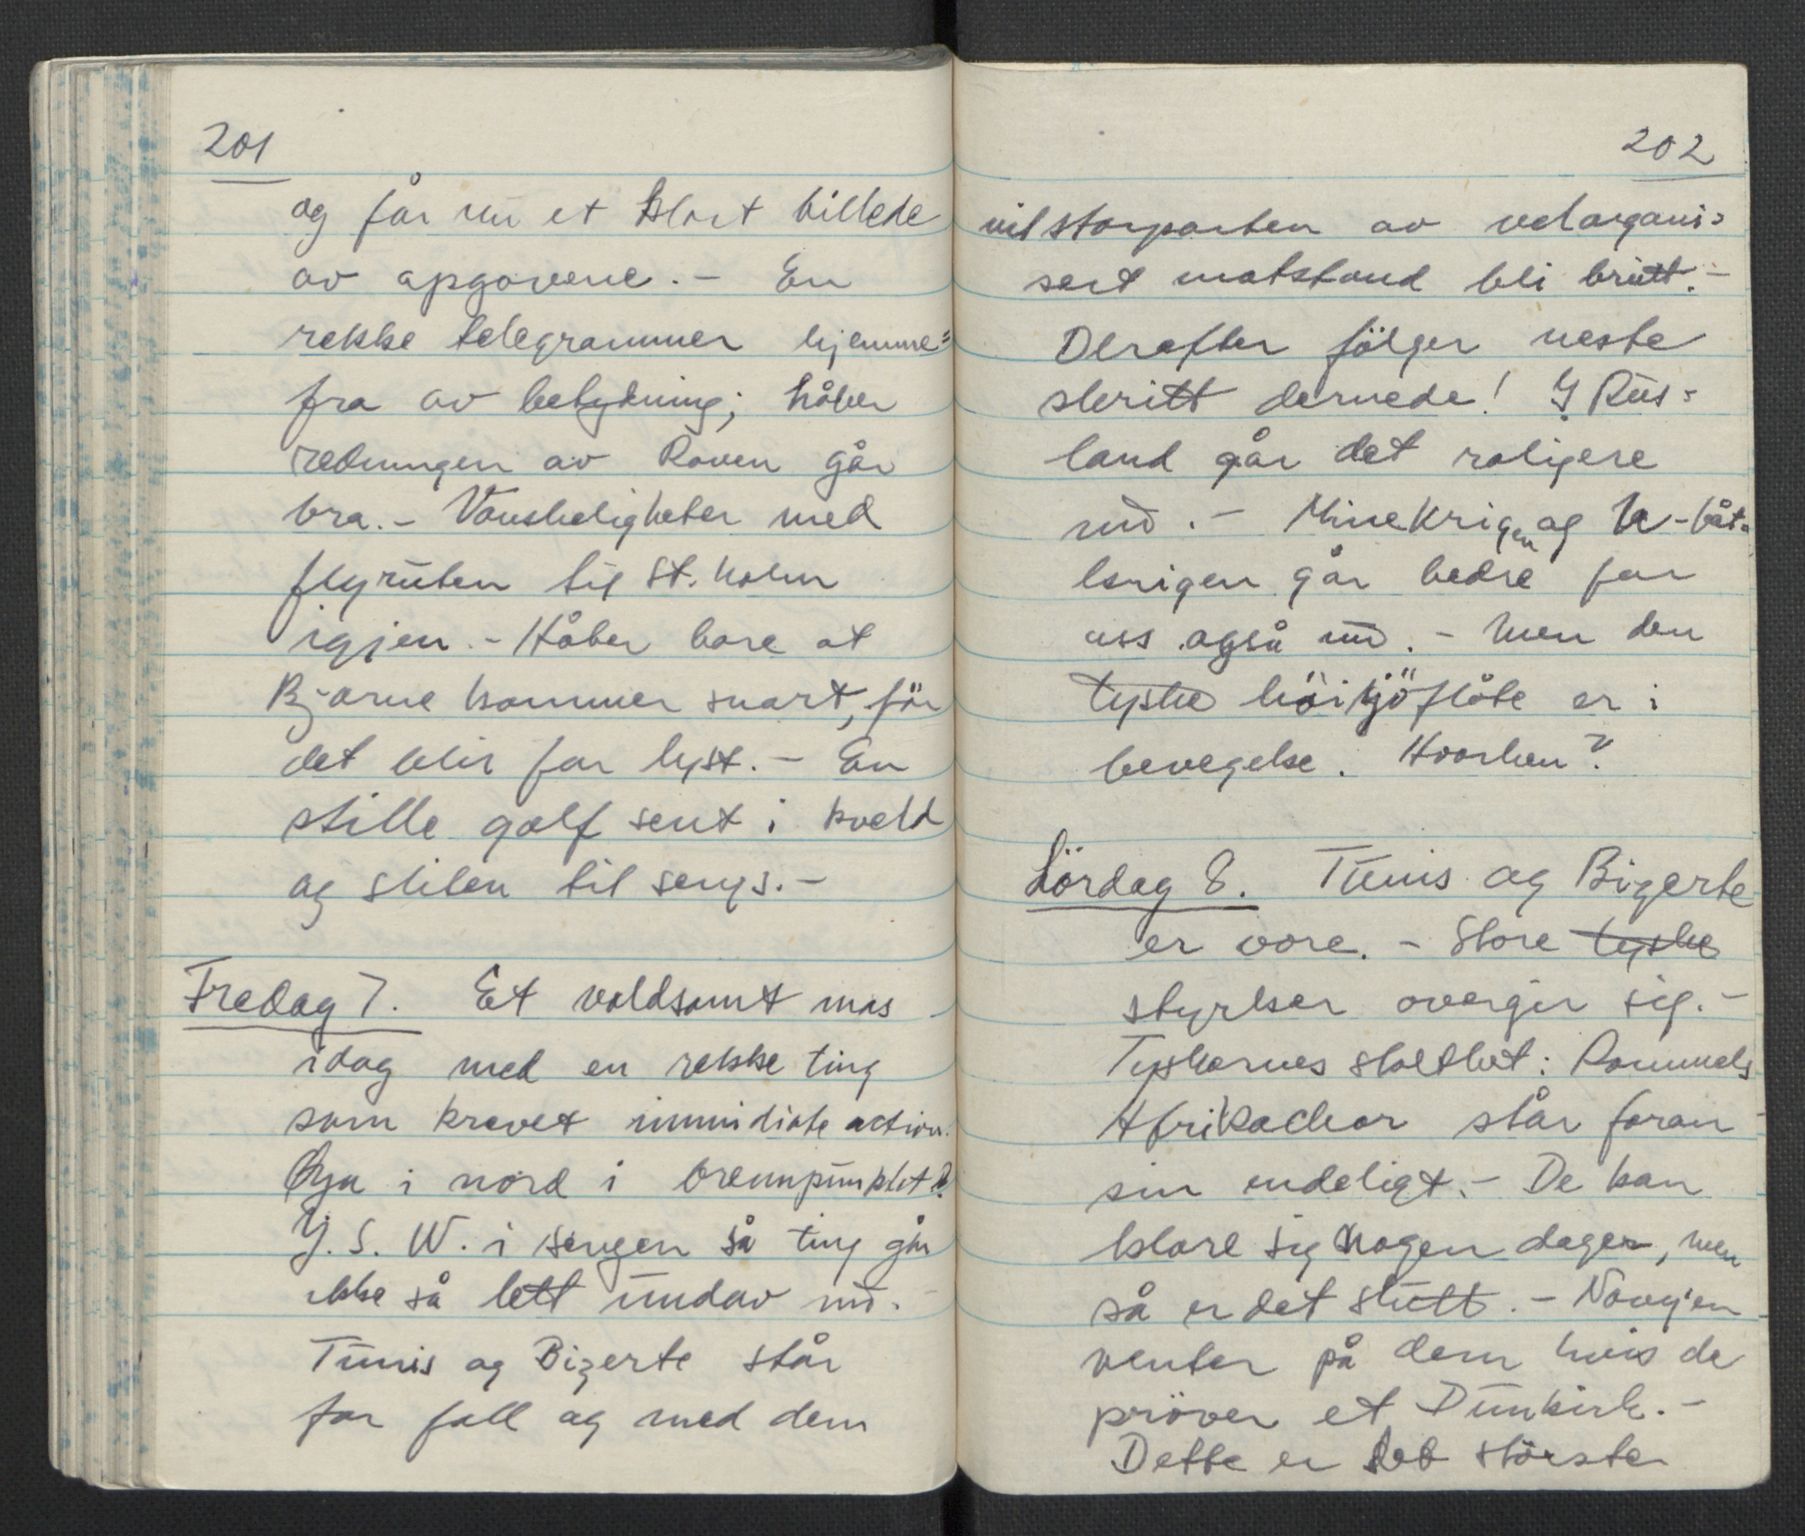 201
og får nu et klart billede
av opgavene. - En
rekke telegrammer hjemme=
fra av betydning; håber
redningen av Raven går
bra. - Vanskeligheter med
flyruten til St. holm
igjen. - Håber bare at
Bjarne kommer snart, før
det blir for lyst. - En
stille golf sent i kveld
og sliten til sengs. -
Fredag 7. Et voldsomt mas
idag med en rekke ting
som krevet immidiate action.
Øya i nord i brennpunktet
J. S. W. i sengen så ting går
ikke så lett undav nu. -
Tunis og Bizerte står
for fall og med dem
202
vil storparten av velorgani=
sert motstand bli brutt. -
Derefter følger neste
skritt dernede! I Rus=
land går det roligere
nu. - Minekrigen og U-båt-
krigen går bedre for
oss også nu. - Men den
tyske höisjöflåte er i
bevegelse. Hvorhen?
Lördag 8. Tunis og Bizerte
er våre. - Store tyske
styrker overgir sig. -
Tyskernes stolthet: Rommels
Afrikachor står foran
sin endeligt. - De kan
klare sig nogen dager, men
så er det slutt. - Navyen
venter på dem hvis de
pröver et Dunkirk. -
Dette er det störste